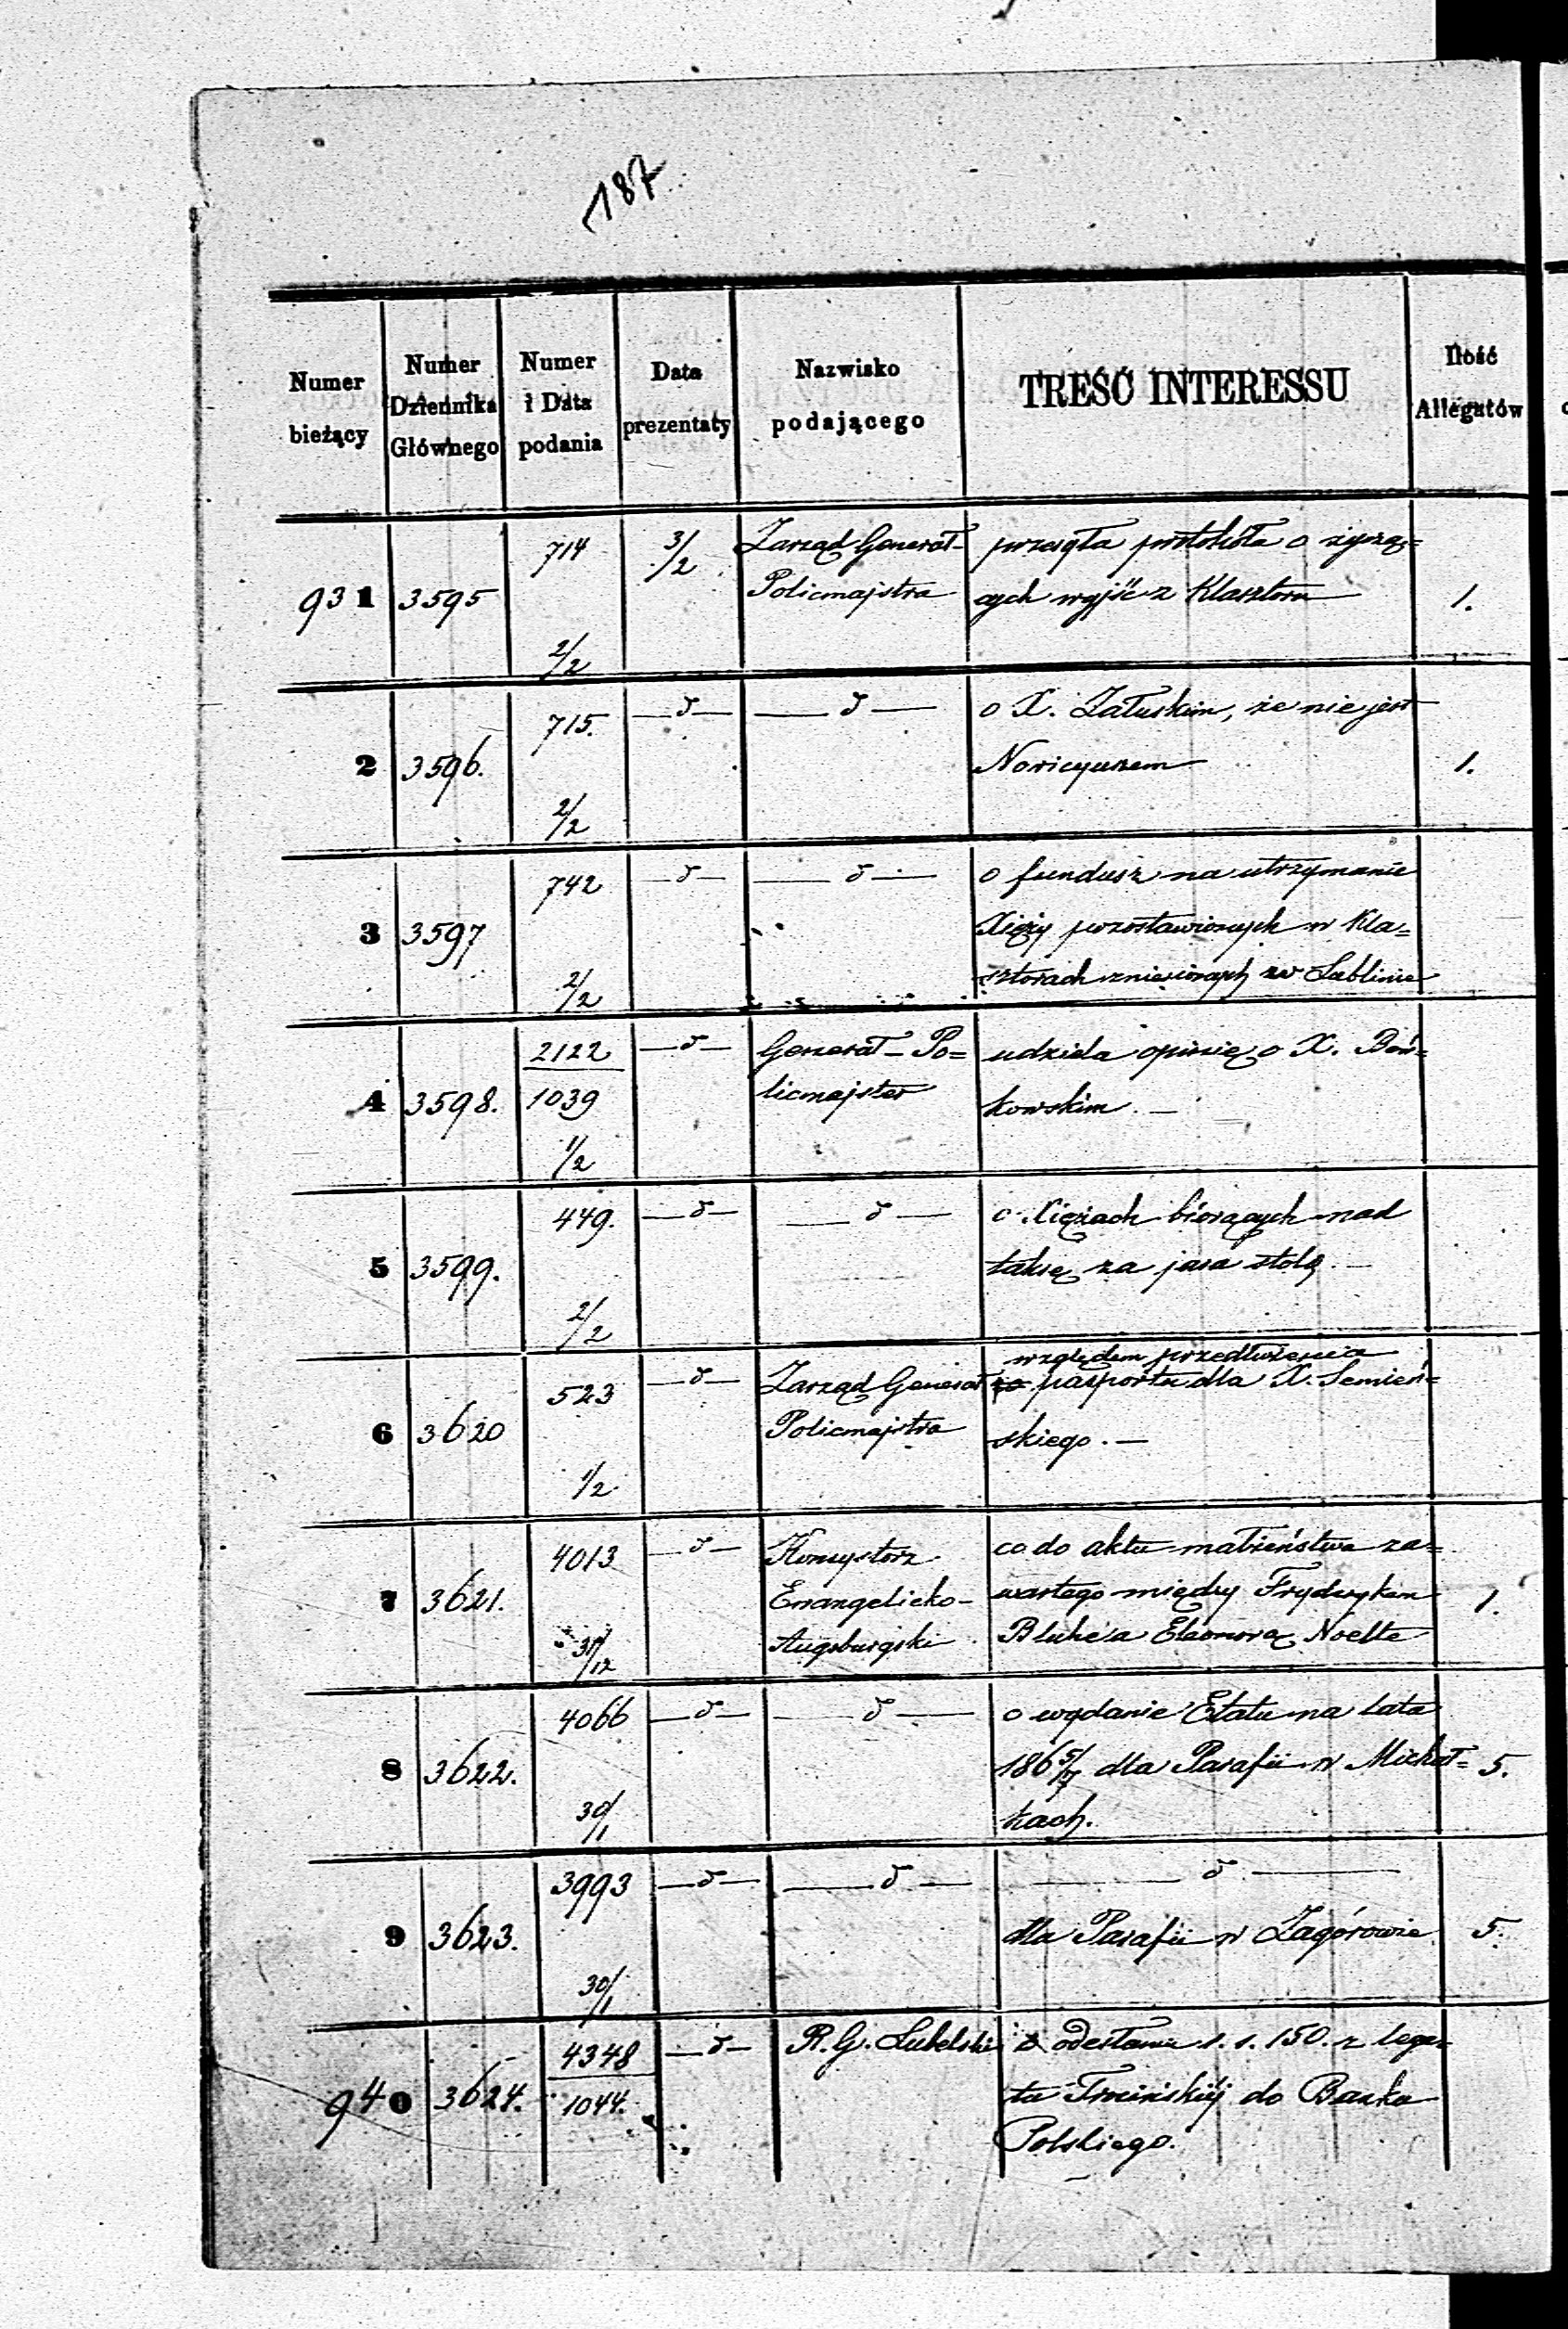 187
Numer bieżący
Numer Dziennika Głównego
Numer i Data podania
Data prezentaty
Nazwisko podającego
TREŚĆ INTERESSU
Ilość Allegatów
931 3595 714 2/2 3/2 Zarząd Generał-
Policmajstra
przesyła protokóła o życzą=
cych wyjść z Klasztoru
1.
2 3596. 715. 2/2 —d— —d— o X. Załuskim, że nie jest
Nowicyuszem
1.
3 3597 742 2/2 —d— —d— o fundusz na utrzymanie
Xięży pozostawionych w Kla=
sztorach zniesionych w Lublinie
4 3598. 2122
1039
1/2 —d— Generał-Po=
licmajster
udziela opinię o X. Boń=
kowskim. —
5 3599. 449. 2/2 —d— —d— o Xiężach biorących nad
taksę za jura stolę. —
6 3620 523 1/2 —d— Zarząd Generał
Policmajstra
względem przedłużenia
pasportu dla X. Semień=
skiego. —
7 3621. 4013 31/12 —d— Konsystorz
Ewangelicko-
Augsburgski
co do aktu małżeństwa za=
wartego między Frydrykem
Bluhe a Eleonorą Noelte
1.
8 3622. 4066 30/1 —d— —d— o wydanie Etatu na lata
1865/7 dla Parafii w Michał=
kach.
5.
9 3623. 3993 30/1 —d— —d— —d—
dla Parafii w Zagórowie
5.
940 3624. 4348
1044. —d— R. G. Lubelski
odesłanie r. s. 150. z lega=
tu do Banku
Polskiego.